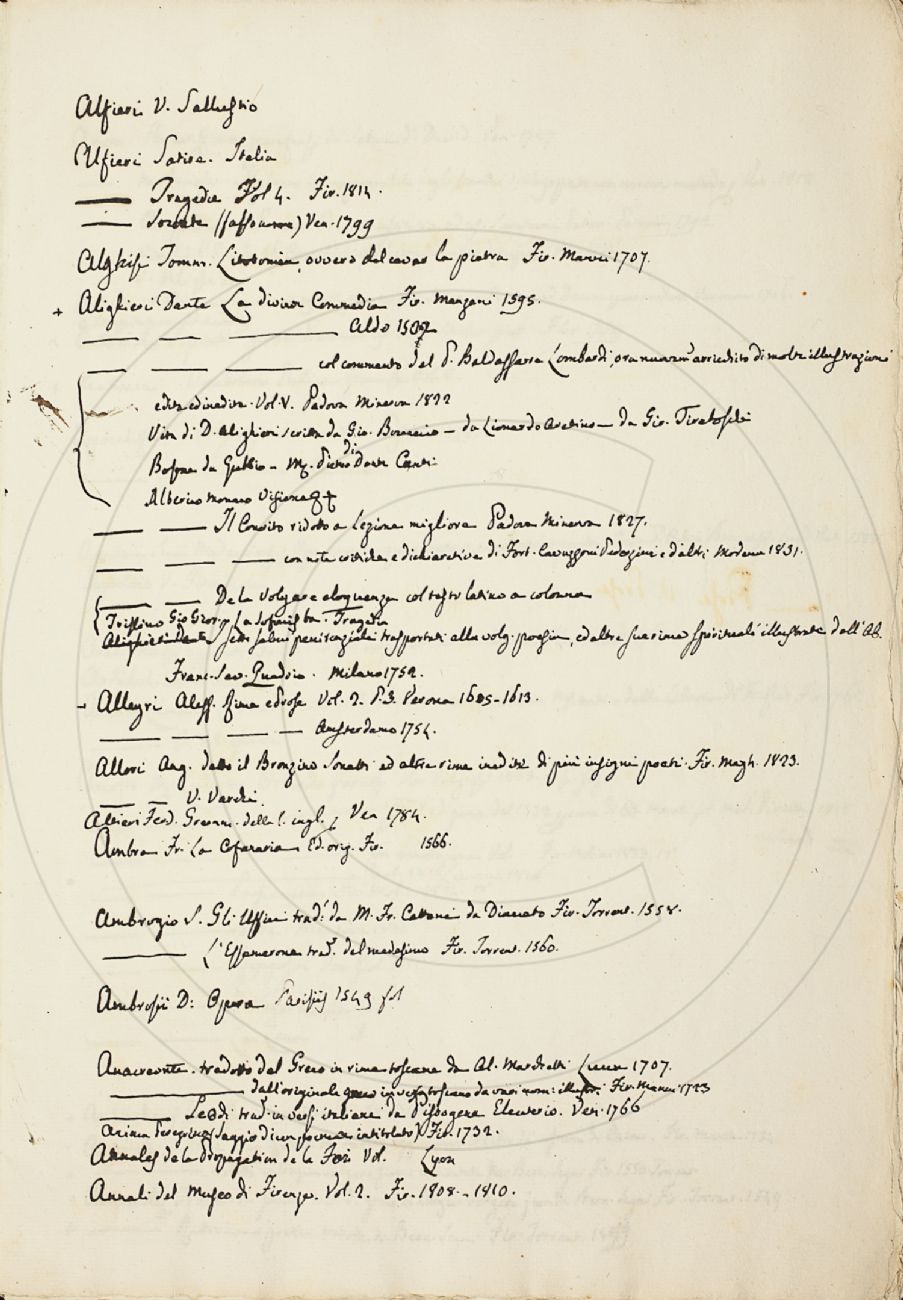 Alfieri V. Sallustio
Alfieri Satire. Italia
—— Tragedie Vol 4. Fir. 1814.
—— Socrate Ven. 1799
Alghisi Tomm. Litotomia, ovvero del cavar la pietra Fir. Manni 1707.
+ Alighieri Dante La divina Commedia Fir. Manzani 1595.
—— —— —— Aldo 1502
—— —— —— col commento del P. Baldassarre Lombardi, ora nuovam. arricchito di molte illustrazioni
edite ed inedite. Vol. V. Padova Minerva 1822
Vita di D. Alighieri scritta da Gio. Boccaccio — da Lionardo Aretino — da Gir. Tiraboschi
Bosone da Gubbio — Mg. Pietro di Dante
Alberico monaco Visione
—— —— Il Convito ridotto a lezione migliore Padova Minerva 1827.
—— —— —— con note critiche e dichiarative di Fort. Cavazzoni Pederzini e d'altri Modena 1831.
—— —— De la volgare eloquenza col testo latino a colonna
Trissino Gio Giorg. La Sofonisba. Tragedia
Alighieri Dante I sette salmi penitenziali trasportati alla volg. poesia, ed altre sue rime spirituali illustrate dall'Ab.
Franc. Sav. Quadrio. Milano 1752.
- Allegri Aless. Rime e prose Vol. 2. P. 3. Verona 1605-1613.
—— —— —— — Amsterdamo 1754.
Allori Ang. detto il Bronzino Sonetti ed altre rime inedite di più insigni poeti. Fir. Magh. 1823.
—— — V. Varchi.
Altieri Ferd. Gramm. della l. ingl. Ven 1784.
Ambra Fr. La Cofanaria Ed. orig. Fir. 1566.
Ambrogio S. Gli Uffici trad. da M. Fr. Cattani da Diaceto Fir. Torrent. 1558.
—— L'Essamerone trad. del medesimo Fir. Torrent. 1560.
Ambrosii D: Opera Parisiis 1549 fol
Anacreonte. tradotto dal Greco in rima toscana da Al. Marchetti Lucca 1707.
—— dall'originale greco in versi toscani da vari nomi illustri. Fir. Manni 1723
—— Le Odi trad. in versi italiani da Pisbogene Eleuterio. Ven. 1766
Anima Peregrina (Saggio di un poema intitolato) Fir. 1732.
Annales de la propagation de la Foi Vol. Lyon
Annali del Museo di Firenze. Vol. 2. Fir. 1808 - 1810.